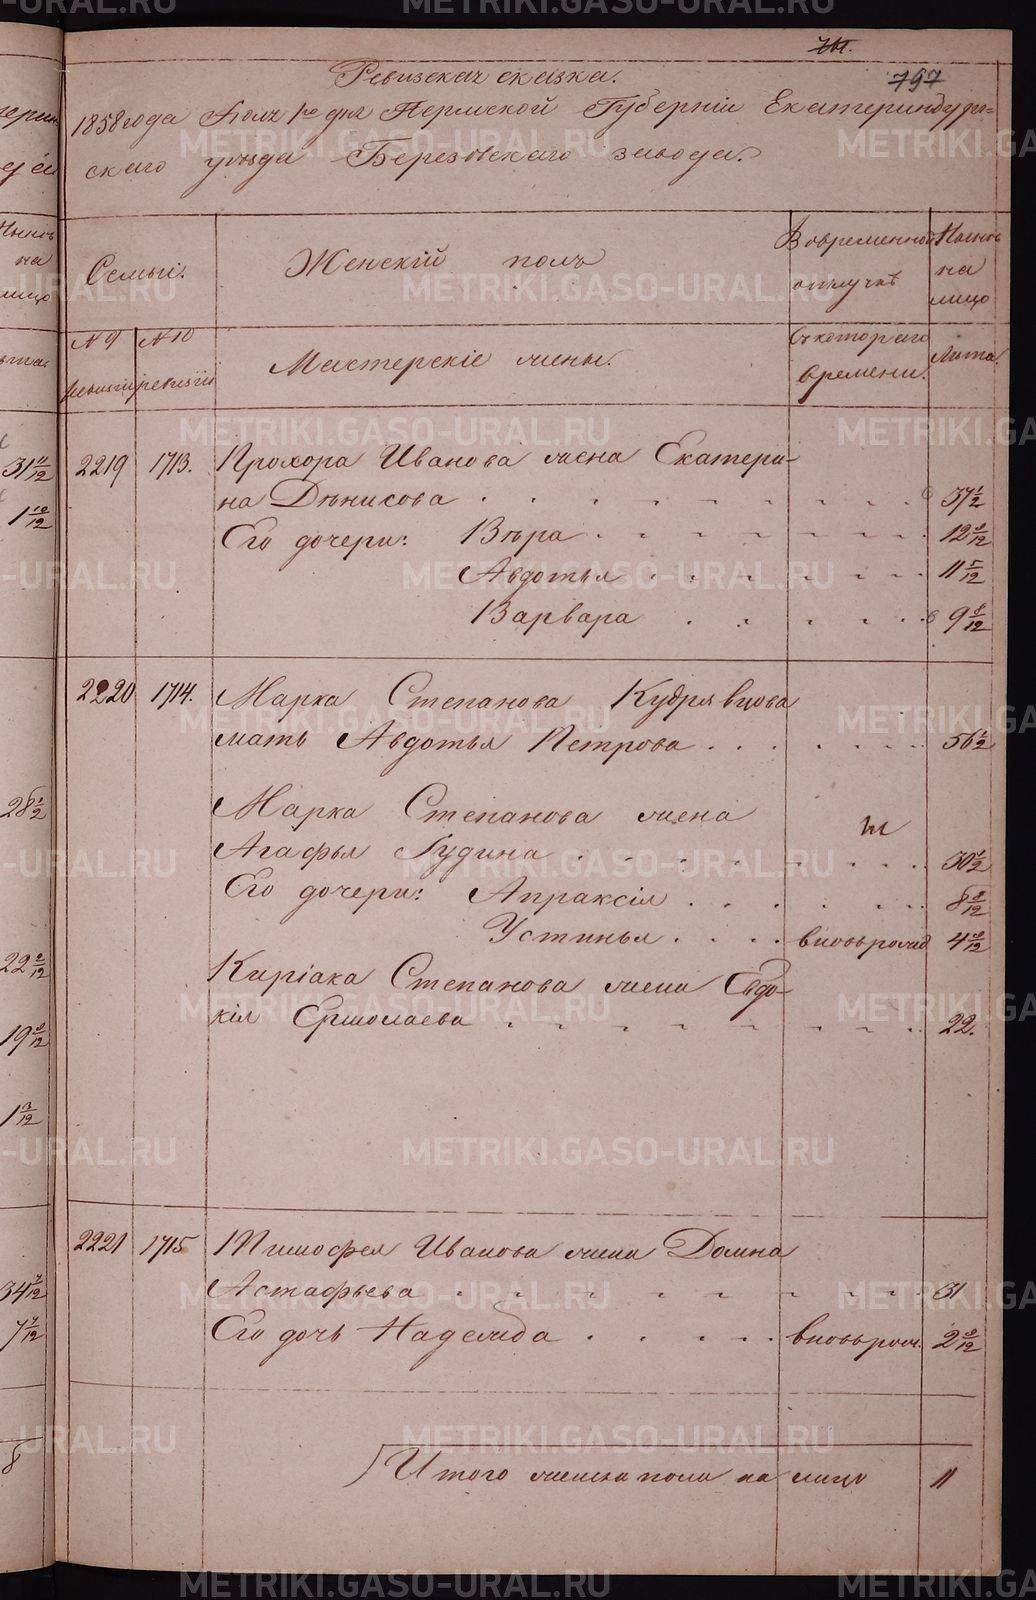 797
Ревизская сказка.
1858 года Іюля 1го дня Пермской Губерніи Екатеринбург-
скаго уѣзда Березовскаго завода.
Семьи.
Женскій полъ
В временной отлучкѣ
Нынѣ на лицо
№ 9 ревизіи
№ 10 ревизіи
Мастерскіе жены.
Съ котораго времени.
Лѣта
2219 1713. Прохора Иванова жена Екатери-
на Денисова 37 1/2
Его дочери: Вѣра 12 8/12
Авдотья 11 5/12
Варвара 9 8/12
2220 1714. Марка Степанова Кудрявцова
мать Авдотья Петрова 56 1/2
Марка Степанова жена
Агафья Гудина 30 1/2
Его дочери: Апраксія 8 8/12
Устинья вновь рожд 4 8/12
Киріака Степанова жена Евдо-
кія Ермолаева 22.
2221 1715 Тимофея Иванова жена Домна
Астафьева 31
Его дочь Надежда вновь рож. 2 8/12
Итого женска пола на лицо 11
31 11/12
1 10/12
28 1/2
22 2/12
19 8/12
1 3/12
34 7/12
7 7/12
8
METRIKI.GASO-URAL.RU